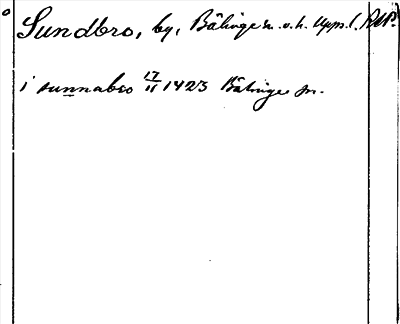 Sundbro, by, Bälinge sn. o. h. Uppl. RAP.
i sunnabro 17/11 1423 Bälinge sn.